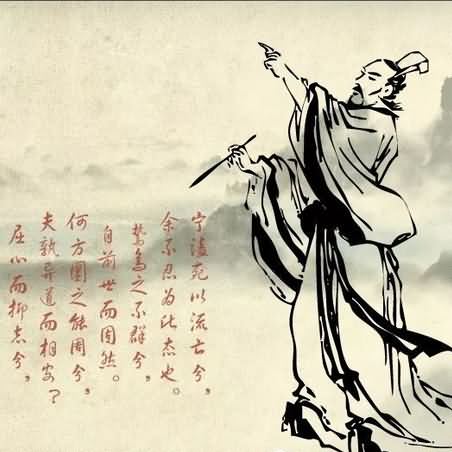 宁溘死以流亡兮，
余不忍为此态也。
鸷鸟之不群兮，
自前世而固然。
何方圜之能周兮，
夫孰异道而相安？
屈心而抑志兮，